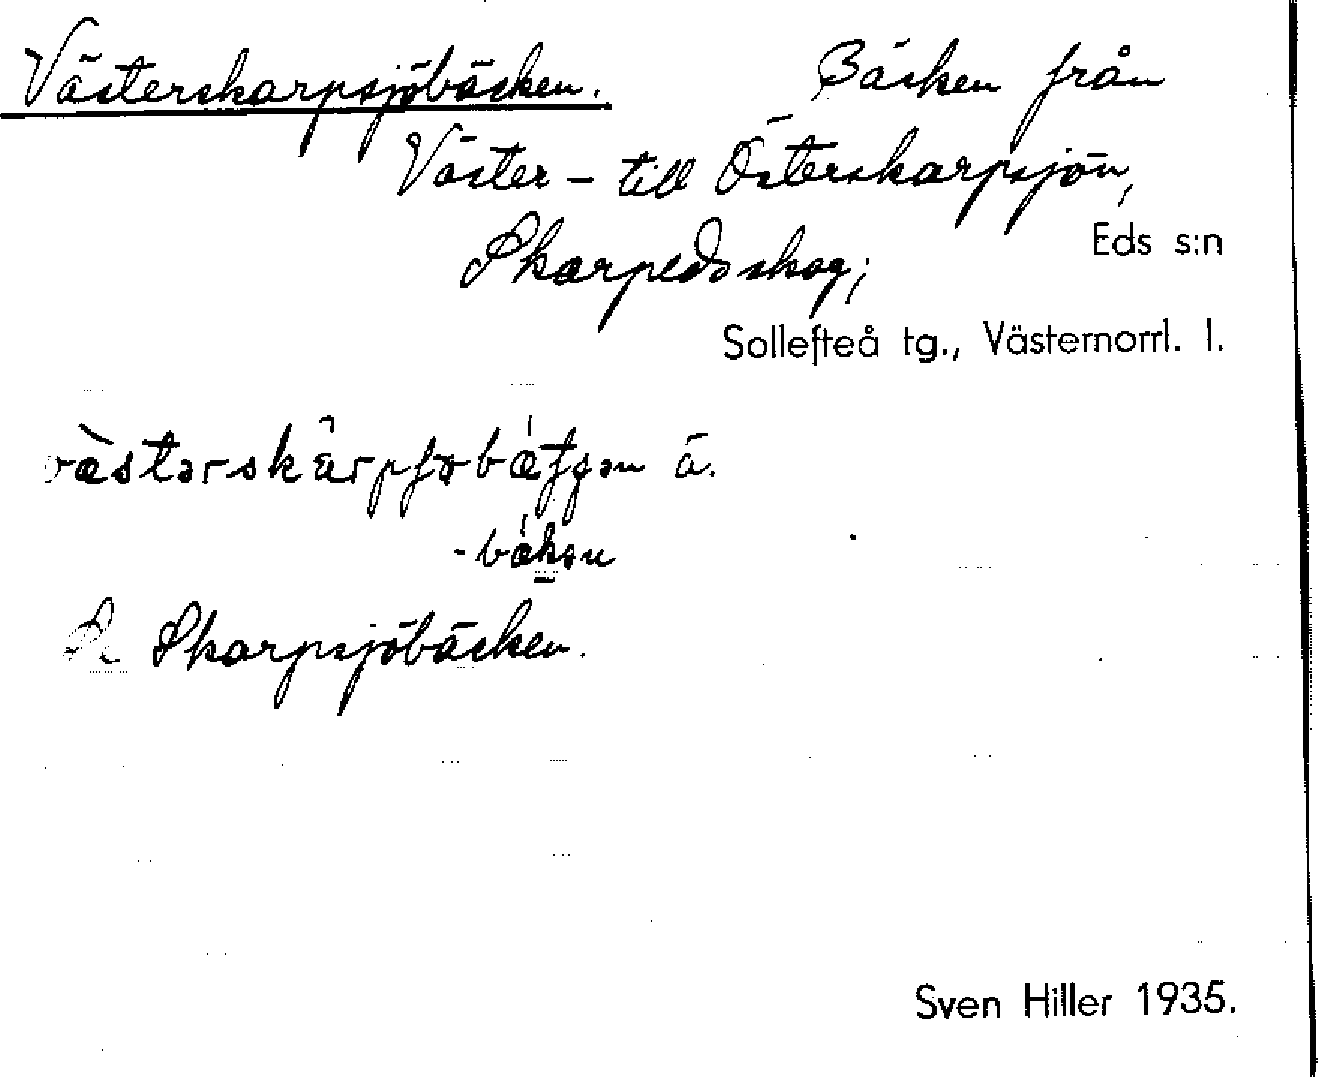 Västerskarpsjöbäcken. Bäcken från
Väster- till Österskarpsjön,
Skarpedsskog; Eds s:n
Sollefteå tg., Västernorrl. l.
-bækən
Skarpsjöbäcken.
Sven Hiller 1935.